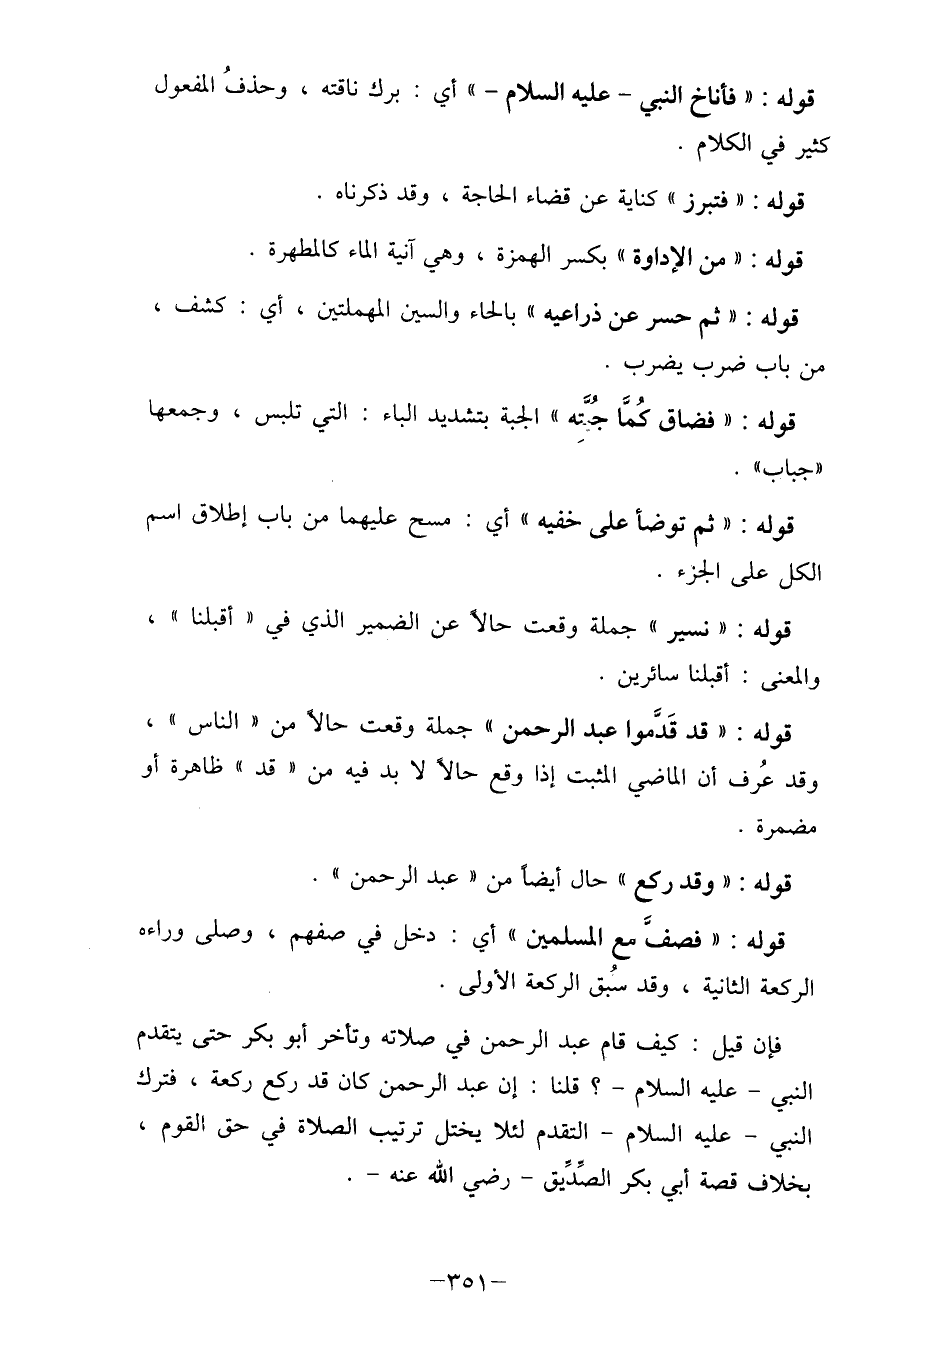 قوله : « فأناخ النبي – عليه السلام – » أي : برك ناقته ، وحذفُ المفعول
كثير في الكلام .
قوله : « فتبرز » كناية عن قضاء الحاجة ، وقد ذكرناه .
قوله : « من الإداوة » بكسر الهمزة ، وهي آنية الماء كالمطهرة .
قوله : « ثم حسر عن ذراعيه » بالحاء والسين المهملتين ، أي : كشف ،
من باب ضرب يضرب .
قوله : « فضاق كُمَّا جُبَّتِه » الجبة بتشديد الباء : التي تلبس ، وجمعها
«جباب» .
قوله : « ثم توضأ على خفيه » أي : مسح عليهما من باب إطلاق اسم
الكل على الجزء .
قوله : « نسير » جملة وقعت حالاً عن الضمير الذي في « أقبلنا » ،
والمعنى : أقبلنا سائرين .
قوله : « قد قَدَّموا عبد الرحمن » جملة وقعت حالاً من « الناس » ،
وقد عُرف أن الماضي المثبت إذا وقع حالاً لا بد فيه من « قد » ظاهرة أو
مضمرة .
قوله : « وقد ركع » حال أيضاً من « عبد الرحمن » .
قوله : « فصفَّ مع المسلمين » أي : دخل في صفهم ، وصلى وراءه
الركعة الثانية ، وقد سُبق الركعة الأولى .
فإن قيل : كيف قام عبد الرحمن في صلاته وتأخر أبو بكر حتى يتقدم
النبي – عليه السلام – ؟ قلنا : إن عبد الرحمن كان قد ركع ركعة ، فترك
النبي – عليه السلام – التقدم لئلا يختل ترتيب الصلاة في حق القوم ،
بخلاف قصة أبي بكر الصِّدِّيق – رضي الله عنه – .
–٣٥١–